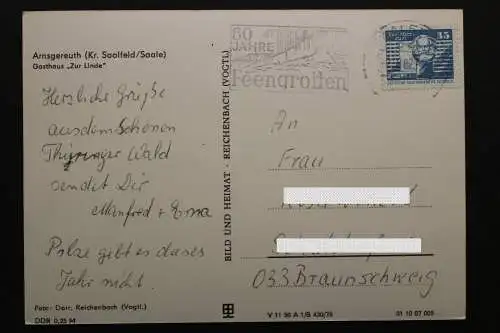 Arnsgereuth (Kr. Saalfeld/Saale)
Gasthaus „Zur Linde"
Herzliche Grüße
aus dem Schönen
Thüringer Wald
sendet Dir
Manfred + Erna
Pilze gibt es dieses
Jahr nicht.
Foto: Darr, Reichenbach (Vogtl.)
DDR 0,25 M
BILD UND HEIMAT · REICHENBACH (VOGTL)
60
JAHRE
Feengrotten
35
An
Frau
033 Braunschweig
V 11 50 A 1/B 430/76
01 10 07 005